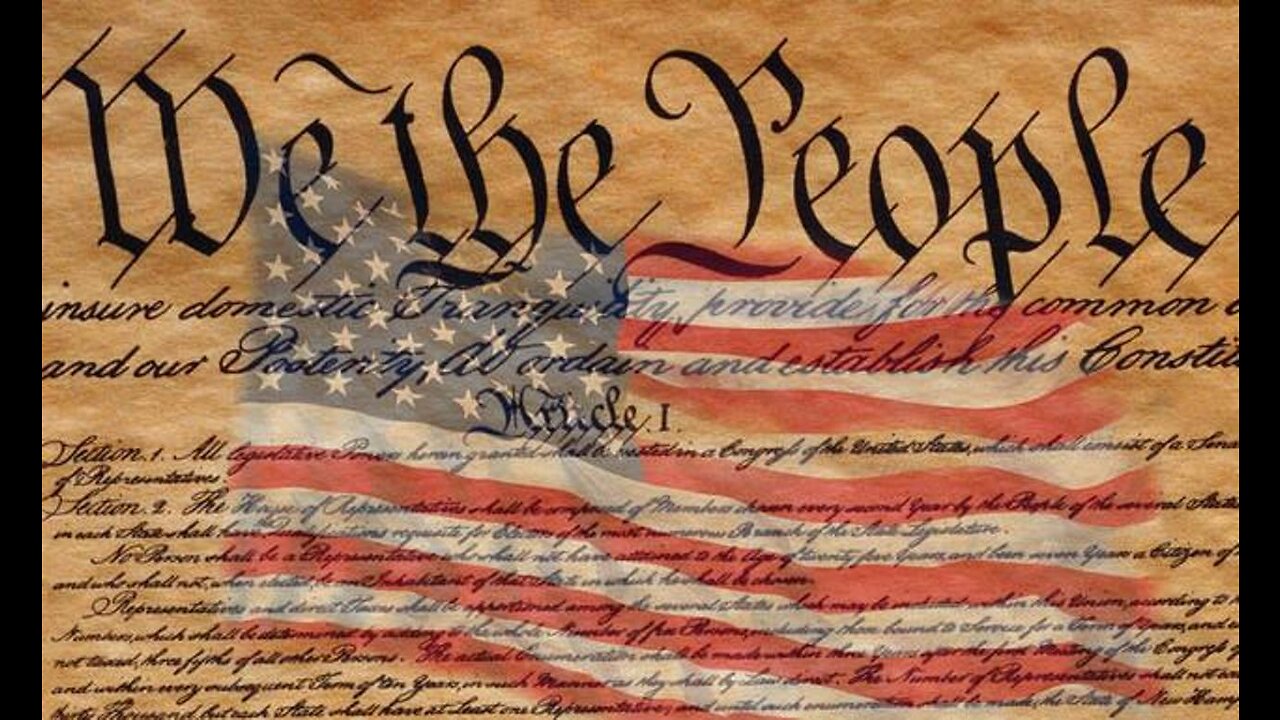 We the People
insure domestic Tranquility, provide for the common
and our Posterity, do ordain and establish this Constitu
Article. I.
Section. 1. All legislative Powers herein granted shall be vested in a Congress of the United States, which shall consist of a Sena
of Representatives.
Section. 2. The House of Representatives shall be composed of Members chosen every second Year by the People of the several States
in each State shall have the Qualifications requisite for Electors of the most numerous Branch of the State Legislature.
No Person shall be a Representative who shall not have attained to the Age of twenty five Years, and been seven Years a Citizen of
and who shall not, when elected, be an Inhabitant of that State in which he shall be chosen.
Representatives and direct Taxes shall be apportioned among the several States which may be included within this Union, according to
Numbers, which shall be determined by adding to the whole Number of free Persons, including those bound to Service for a Term of Years, and
not taxed, three fifths of all other Persons. The actual Enumeration shall be made within three Years after the first Meeting of the Congress of
and within every subsequent Term of ten Years, in such Manner as they shall by Law direct. The Number of Representatives shall not
thirty Thousand, but each State shall have at Least one Representative; and until such enumeration shall be made, the State of New Hamp